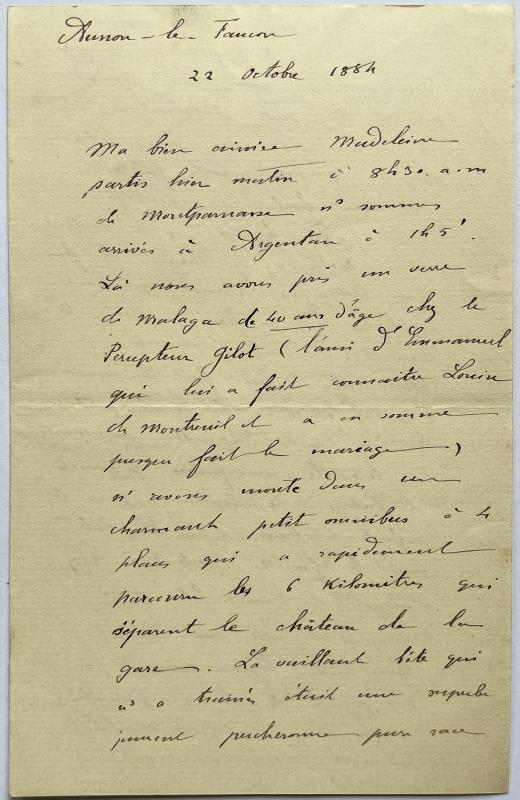 Aunou-le-Faucon
22 octobre 1884
Ma bien aimée Madeleine
partis hier matin à 8h30. a.m
de Montparnasse ns sommes
arrivés à Argentan à 1h5'.
Là nous avons pris un verre
de Malaga de 40 ans d'âge chez le
Percepteur Gilot (l'ami d'Emmanuel
qui lui a fait connaitre Louise
de Montreuil et a en somme
presque fait le mariage)
ns avons monté dans un
charmant petit omnibus à 4
places qui a rapidement
parcouru les 6 Kilomètres qui
séparent le château de la
gare. La vaillante bête qui
ns a trainés était une superbe
jument percheronne pure race